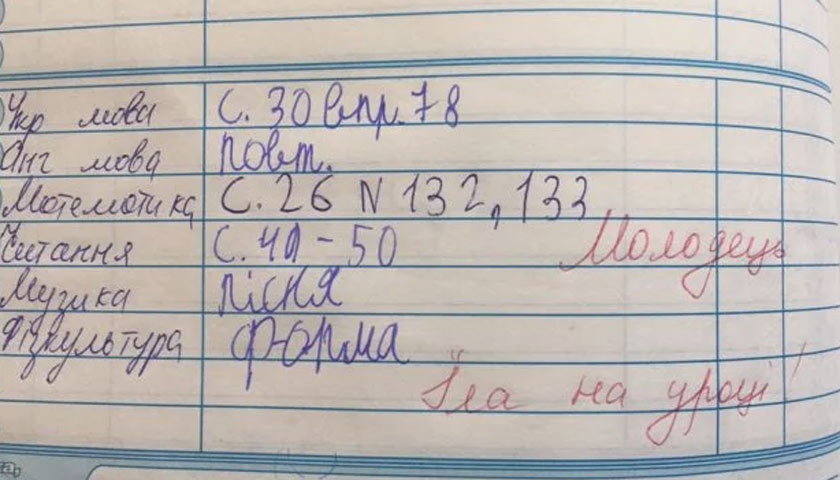 Укр мова С. 30 впр. 78
Анг мова повт.
Мотемотика С. 26 N 132, 133
Читання С. 41 - 50
Молодець
Музика пісня
Фізкультура форма
Їла на уроці!